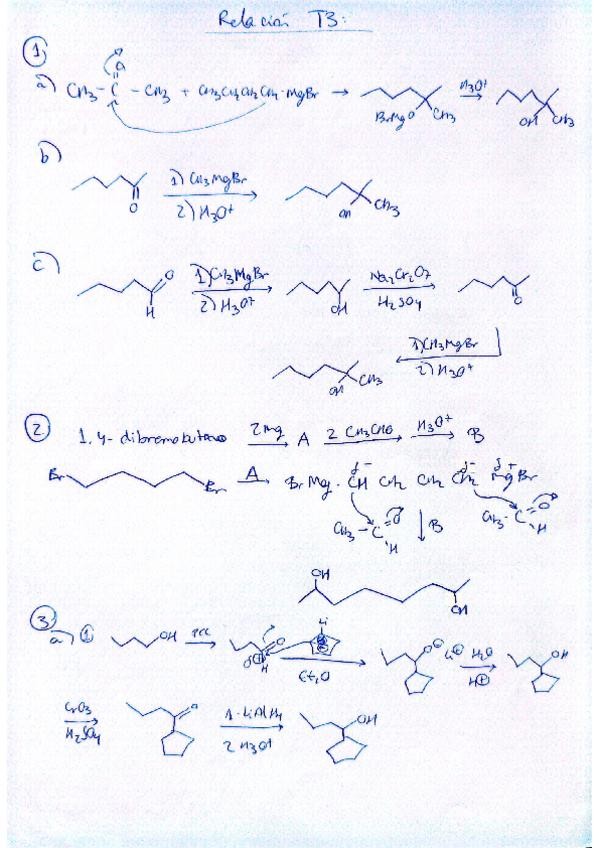 Relación T3:
1
a) CH3 - C - CH3 + CH3CH2CH2CH2 - MgBr → BrMgO CH3 H3O+ → OH CH3
O
b)
O 1) CH3MgBr 2) H3O+ OH CH3
c)
O H 1) CH3MgBr 2) H3O+ OH Na2Cr2O7 H2SO4 O
1) CH3MgBr 2) H3O+
OH CH3
2 1,4-dibromobutano 2Mg → A 2 CH3CHO → H3O+ → B
Br Br A → BrMg - CH CH2 CH2 CH2 MgBr
δ- δ- δ+
CH3 - C O H ↓ B CH3 - C O H
OH
OH
3
a) 1 OH PCC → O H δ+ Li Et2O → O⊖ Li⊕ H2O H⊕ → OH
CrO3 H2SO4 → O 1- LiAlH4 2 H3O+ → OH